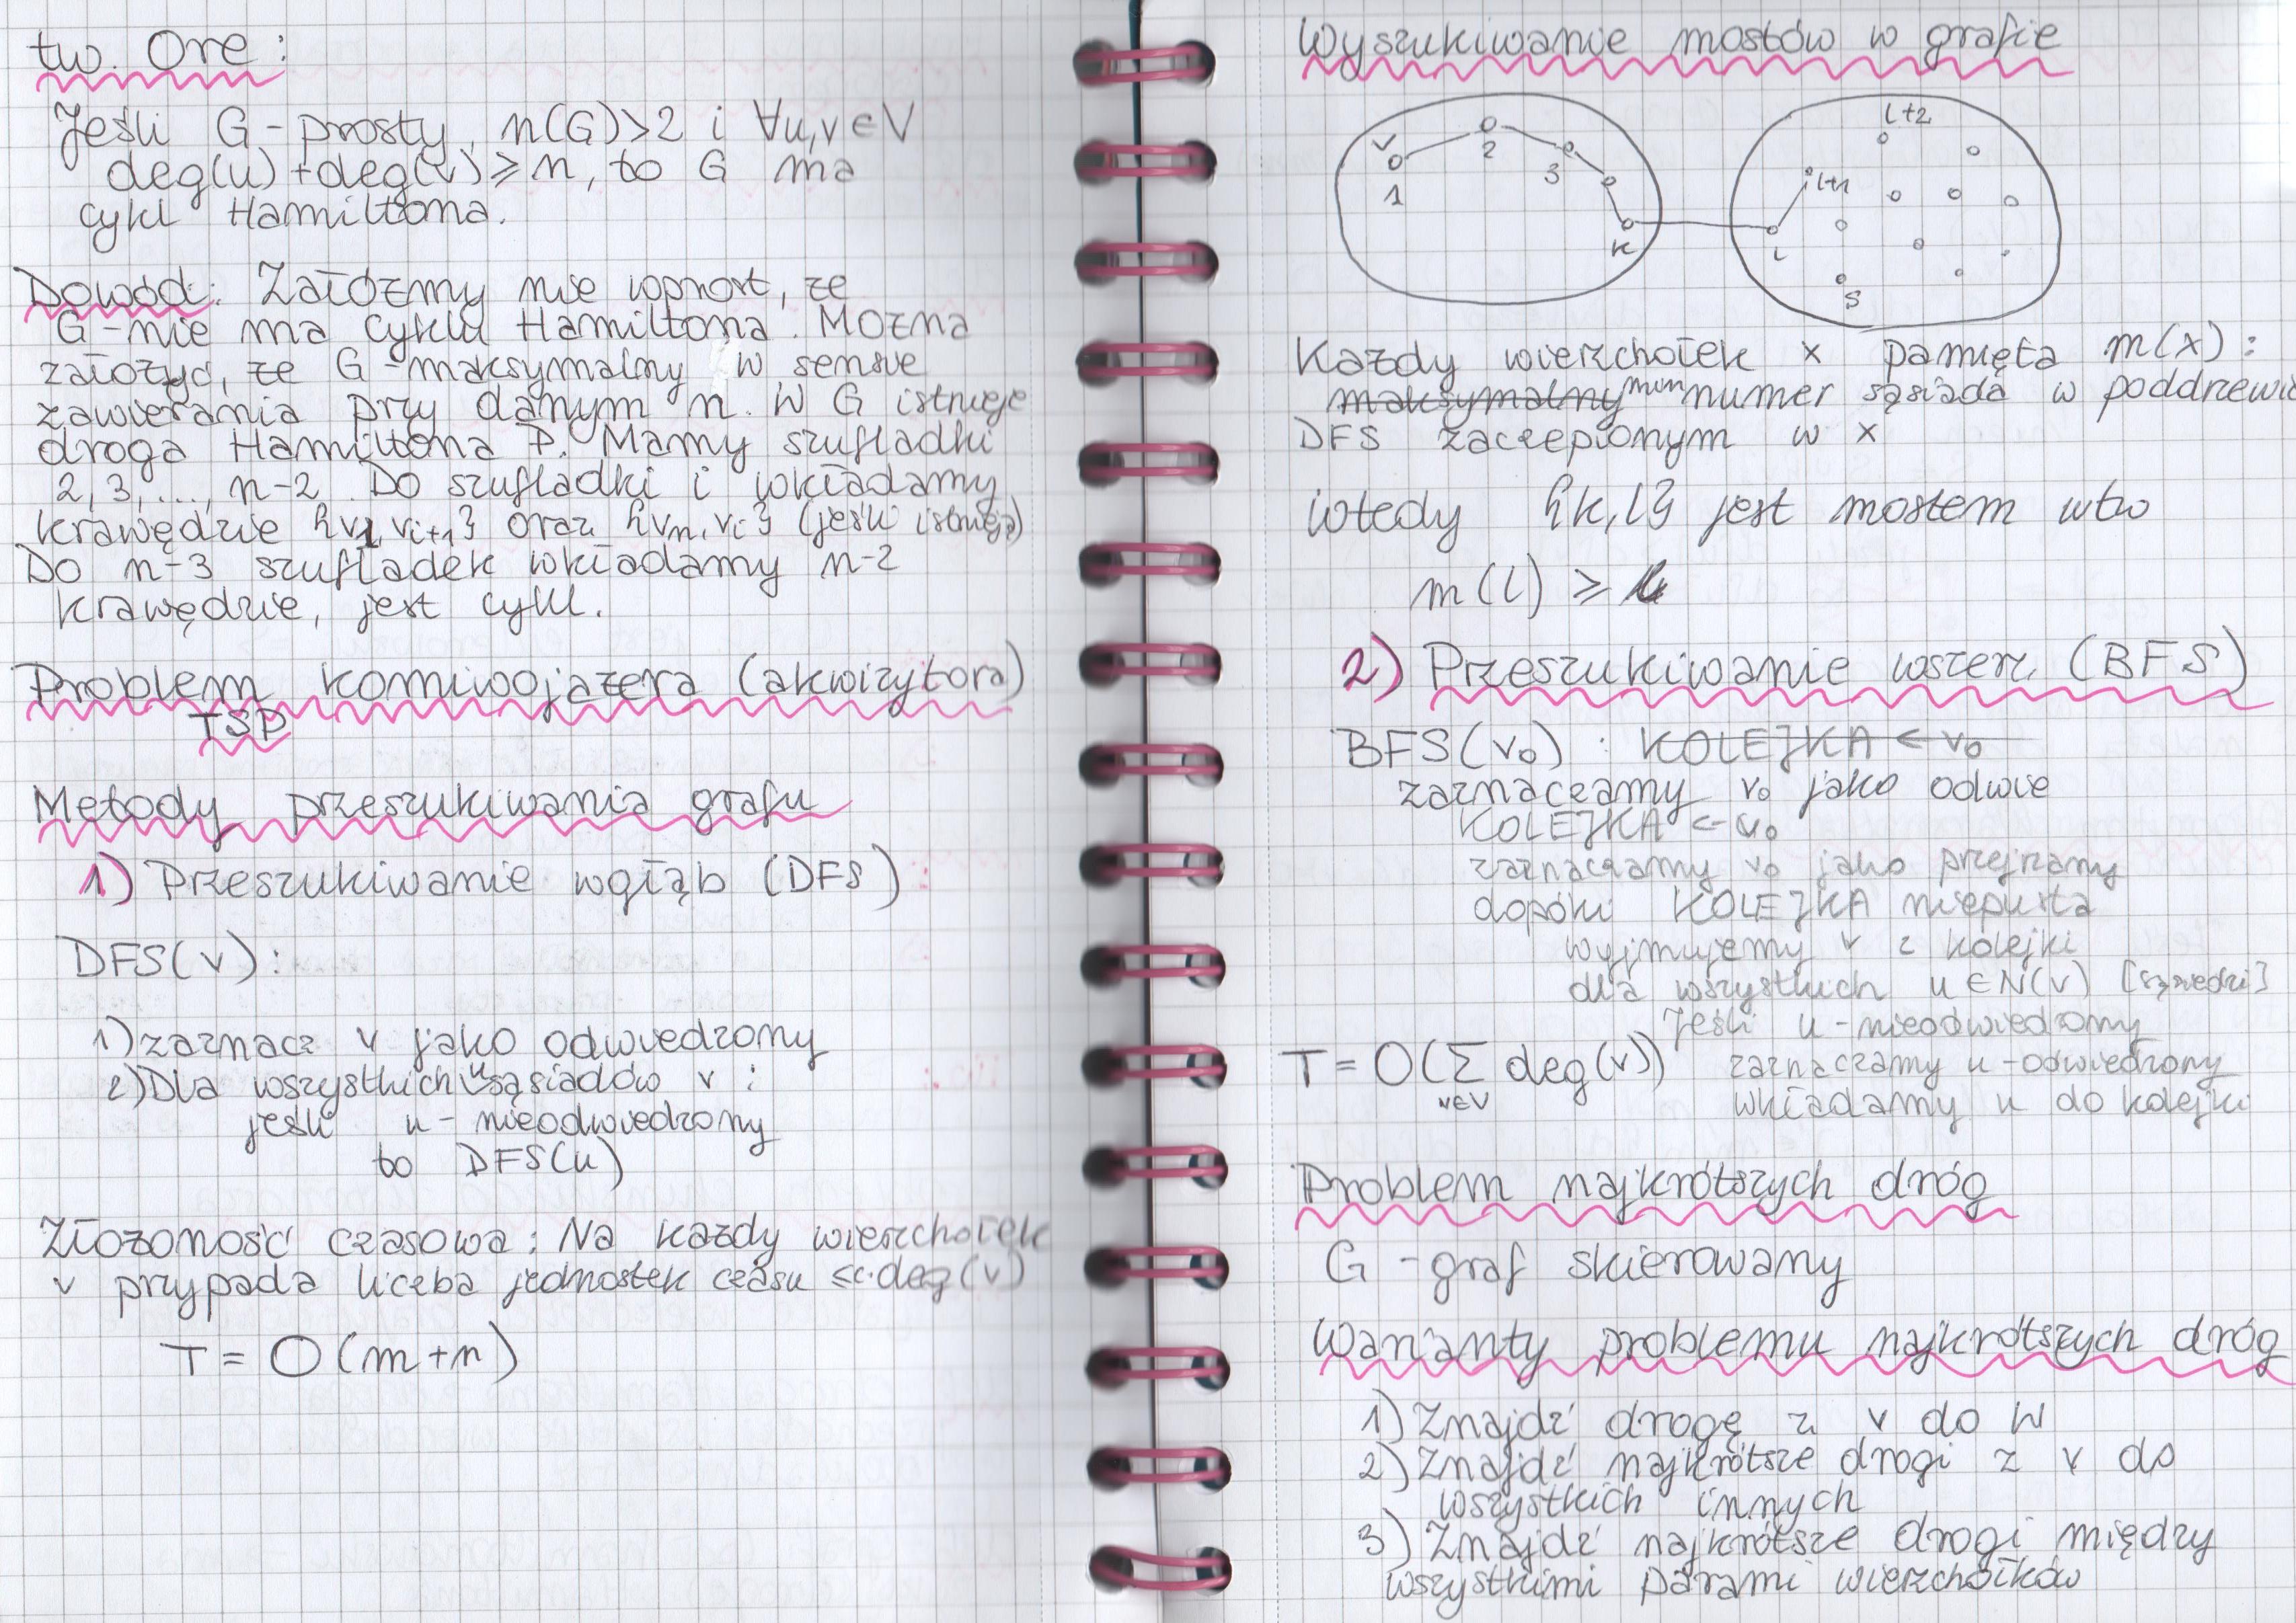 tw. Ore:
Jeśli G-prosty, n(G)>2 i ∀u,v∈V
deg(u)+deg(v)≥n, to G ma
cykl Hamiltona.
Dowód: Załóżmy nie wprost, że
G-nie ma cyklu Hamiltona. Można
założyć, że G-maksymalny w sensie
zawierania przy danym n. W G istnieje
droga Hamiltona P. Mamy szufladki
2,3,..., n-2. Do szufladki i wkładamy
krawędzie {v1,vi+1} oraz {vn,vi} (jeśli istnieją)
Do n-3 szufladek wkładamy n-2
krawędzie, jest cykl.
Problem komiwojażera (akwizytora)
TSP
Metody przeszukiwania grafu
1) Przeszukiwanie wgłąb (DFS)
DFS(v):
1) zaznacz v jako odwiedzony
2) Dla wszystkich u sąsiadów v:
jeśli u-nieodwiedzony
to DFS(u)
Złożoność czasowa: Na każdy wierzchołek
v przypada liczba jednostek czasu ≤c·deg(v)
T = O(m+n)
Wyszukiwanie mostów w grafie
v
1
2
3
k
l
l+1
l+2
s
Każdy wierzchołek x pamięta m(x):
maksymalny min numer sąsiada w poddrzewie
DFS zaczepionym w x
wtedy {k,l} jest mostem wtw
m(l) ≥
2) Przeszukiwanie wszerz (BFS)
BFS(v0): KOLEJKA ← v0
zaznaczamy v0 jako odwie
KOLEJKA ← v0
zaznaczamy v0 jako przejrzany
dopóki KOLEJKA niepusta
wyjmujemy v z kolejki
dla wszystkich u∈N(v) [sąsiedzi]
jeśli u-nieodwiedzony
zaznaczamy u-odwiedzony
wkładamy u do kolejki
T = O(∑ deg(v))
v∈V
Problem najkrótszych dróg
G-graf skierowany
Warianty problemu najkrótszych dróg
1) Znajdź drogę z v do W
2) Znajdź najkrótsze drogi z v do
wszystkich innych
3) Znajdź najkrótsze drogi między
wszystkimi parami wierzchołków